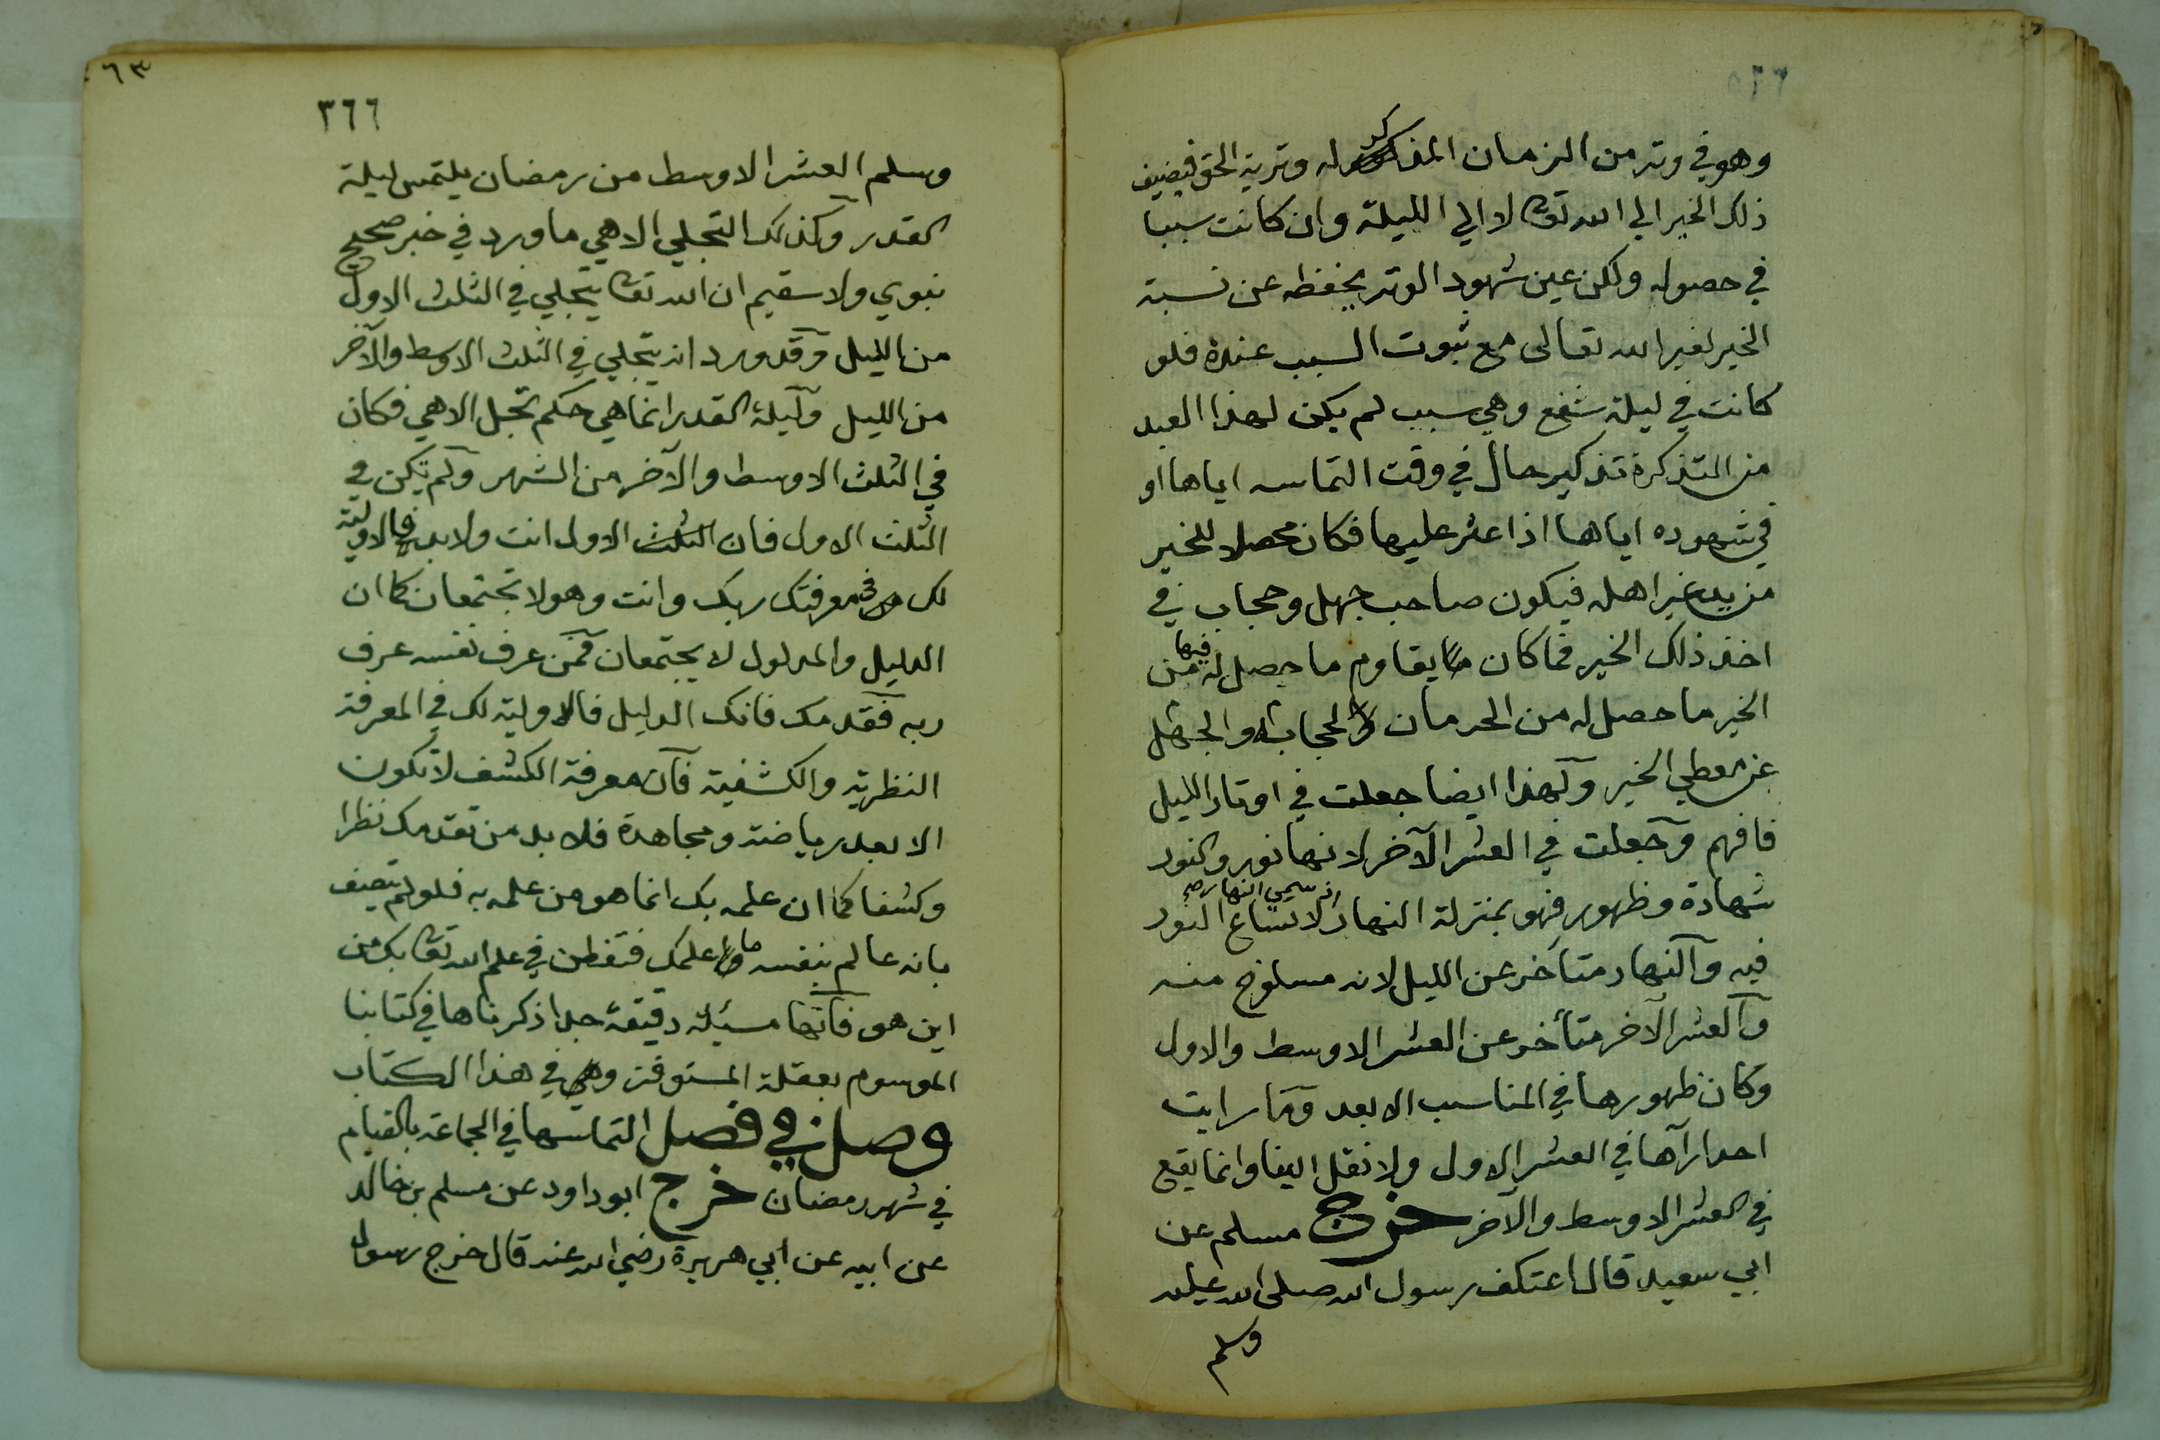 وهو في وتر من الزمان المذكر له وترية الحق فيضيف
ذلك الخير الى الله تعا لا الي الليلة وان كانت سببا
في حصوله ولكن عين شهود الوتر يحفظه عن نسبة
الخير لغير الله تعالى مع ثبوت السبب عنده فلو
كانت في ليلة شفع وهي سبب لم يكن لهذا العبد
من التذكرة تذكير حال في وقت التماسه اياها او
في شهوده اياها اذا عثر عليها فكان محصلا للخير
من يد غير اهله فيكون صاحب جهل وحجاب في
اخذ ذلك الخير فما كان يقاوم ما حصل له فيها من
الخير ما حصل له من الحرمان والحجاب والجهل
عن معطي الخير ولهذا ايضا جعلت في اوتار الليل
فافهم وجعلت في العشر الآخر لانها نور والنور
شهادة وظهور فهو بمنزلة النهار انه سمي النهار لاتساع النور
فيه والنهار متأخر عن الليل لانه مسلوخ منه
والعشر الآخر متأخر عن العشر الاوسط والاول
وكان ظهورها في المناسب الابعد وما رايت
احدا رآها في العشر الاول ولا نقل الينا وانما يقع
في العشر الاوسط والآخر خرج مسلم عن
ابي سعيد قال اعتكف رسول الله صلى الله عليه
وسلم
٦٣
٣٦٦
وسلم العشر الاوسط من رمضان يلتمس ليلة
القدر وكذلك التجلي الاهي ما ورد في خبر صحيح
نبوي ولا سقيم ان الله تعا يتجلي في الثلث الاول
من الليل وقد ورد انه يتجلي في الثلث الاوسط والآخر
من الليل وليلة القدر انما هي حكم تجل الاهي فكان
في الثلث الاوسط والآخر من الشهر ولم يكن في
الثلث الاول فان الثلث الاول انت ولا بد في الاولية
لك في معرفتك ربك وانت وهو لا تجتمعان كما ان
الدليل والمدلول لا يجتمعان فمن عرف نفسه عرف
ربه فقدمك فانك الدليل فالاولية لك في المعرفة
النظرية والكشفية فان معرفة الكشف لا تكون
الا بعد رياضة ومجاهدة فلا بد من تقدمك نظرا
وكشفا كما ان علمه بك انما هو من علمه به فلو لم يتصف
بانه عالم بنفسه ما علمك فتفطن في علم الله تعا بك من
اين هو فانها مسئلة دقيقة جدا ذكرناها في كتابنا
الموسوم بعقلة المستوفز وهي في هذا الكتاب
وصل في فصل التماسها في الجماعة بالقيام
في شهر رمضان خرج ابو داود عن مسلم بن خالد
عن ابيه عن ابي هريرة رضي الله عنه قال خرج رسول